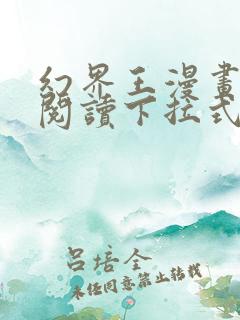 幻界王漫畫
閱讀下拉式
呂培全
未经同意禁止转载